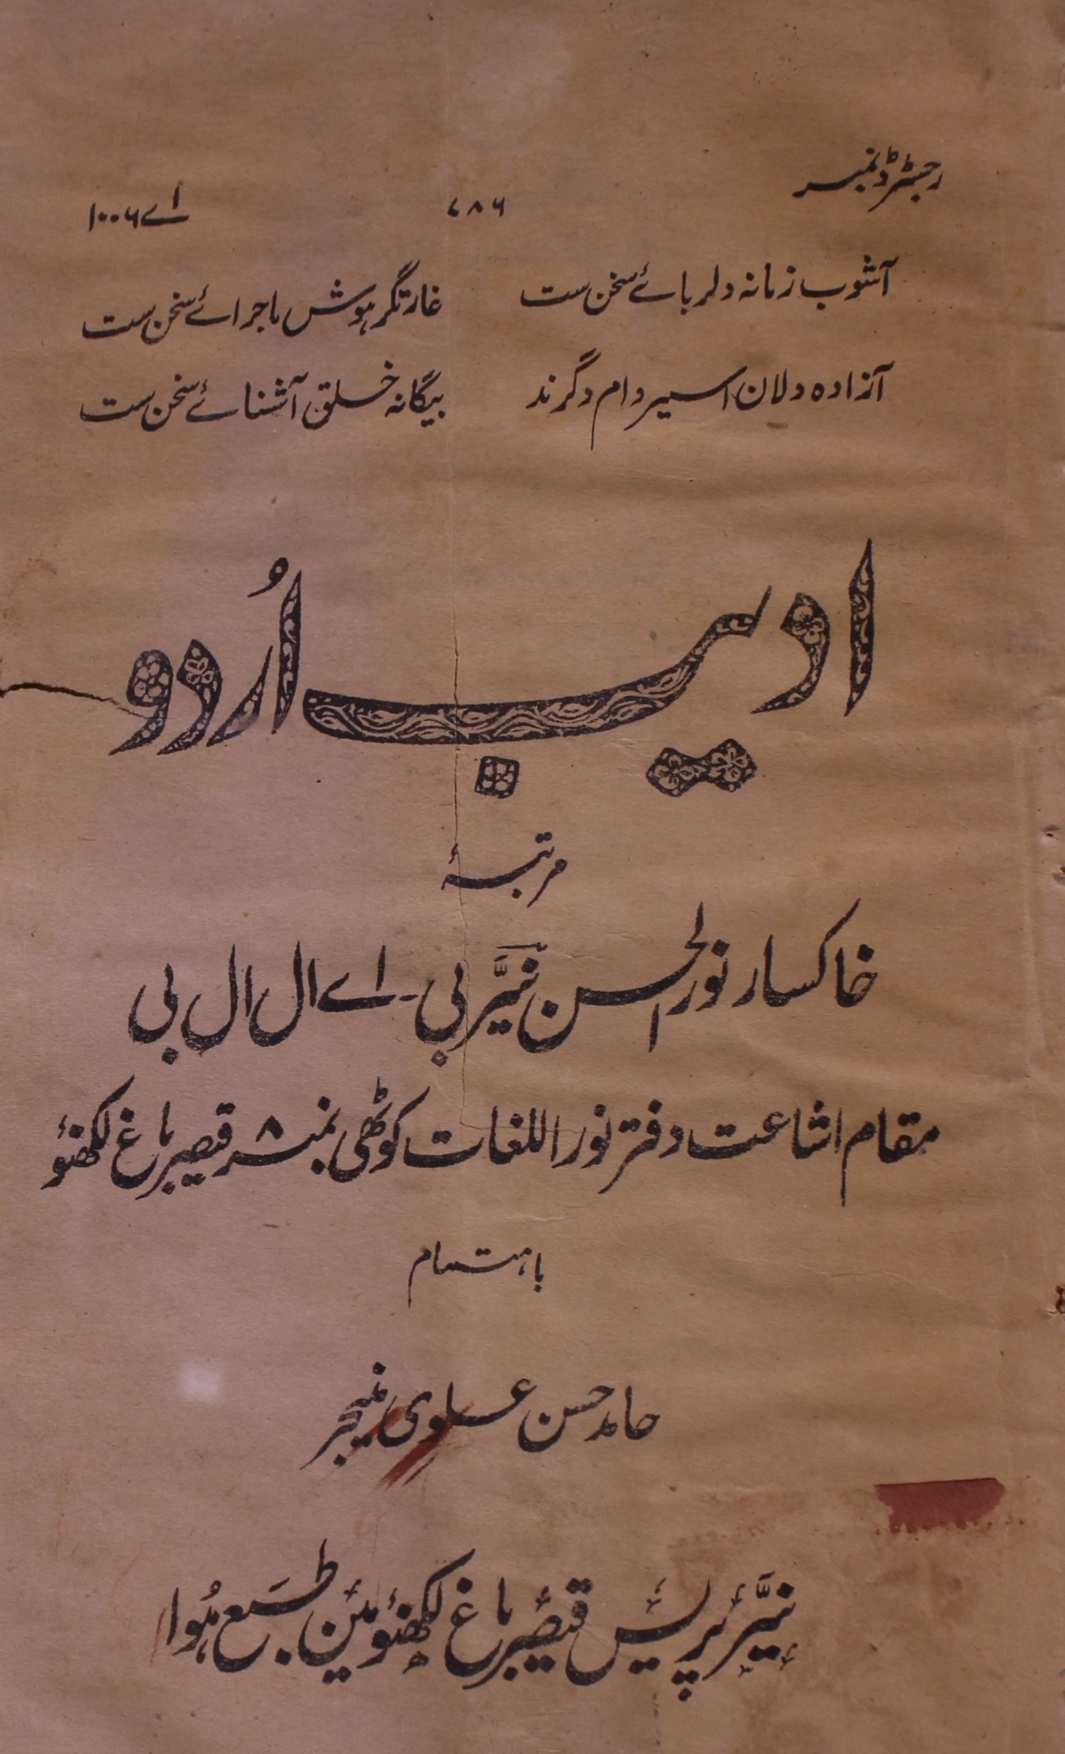 رجسٹرڈ نمبر ۷۸۶ اے ۱۰۰۶
آشوب زمانہ دلربائے سخن ست غارتگر ہوش ماجرائے سخن ست
آزادہ دلان اسیر دام دگرند بیگانہ خلق آشنائے سخن ست
ادیب اُردو
مرتبۂ
خاکسار نور الحسن نیّر بی۔ اے ال ال بی
مقام اشاعت دفتر نور اللغات کوٹھی نمبر ۸ قیصر باغ لکھنؤ
باہتمام
حامد حسن علوی منیجر
نیّر پریس قیصر باغ لکھنؤ مین طبع ہُوا